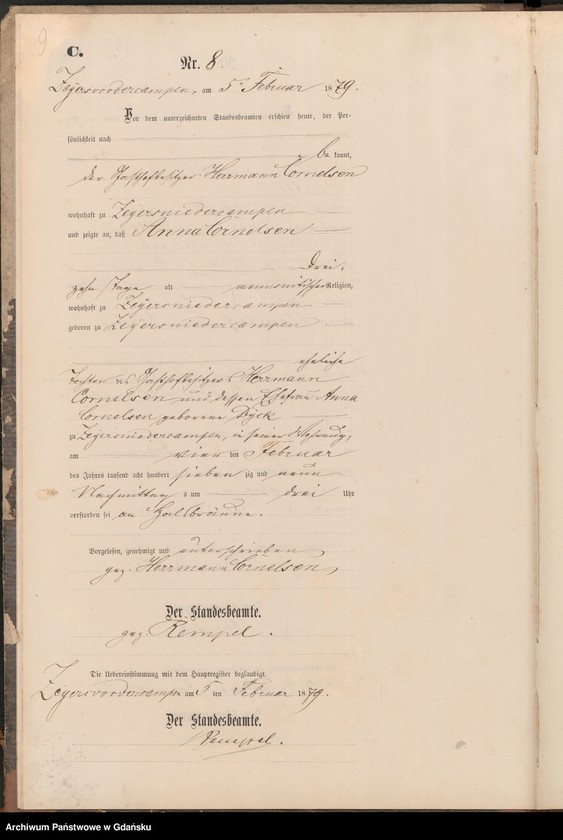 9
C.
Nr. 8.
Zeyersvordercampen, am 5ten Februar 1879.
Vor dem unterzeichneten Standesbeamten erschien heute, der Per-
sönlichkeit nach
be kannt,
der Gasthofbesitzer Herrmann Cornelsen
wohnhaft zu Zeyersniedercampen
und zeigte an, daß Anna Cornelsen
drei-
zehn Tage alt mennonitischer Religion,
wohnhaft zu Zeyersniedercampen
geboren zu Zeyersniedercampen
eheliche
Tochter des Gasthofbesitzers Herrmann
Cornelsen und dessen Ehefrau Anna
Cornelsen geborene Dyck
zu Zeyersniedercampen, in seiner Wohnung,
am vier ten Februar
des Jahres tausend acht hundert sieben zig und neun
Nachmittags um drei Uhr
verstorben sei an Halsbräune.
Vorgelesen, genehmigt und unterschrieben
gez. Herrmann Cornelsen,
Der Standesbeamte.
gez Rempel.
Die Uebereinstimmung mit dem Hauptregister beglaubigt.
Zeyersvordercampen am 5 ten Februar 1879.
Der Standesbeamte.
Rempel.
Archiwum Państwowe w Gdańsku